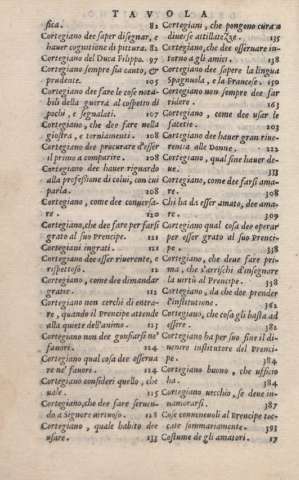 TAVOLA
sica. 81
Cortegiano dee saper disegnar, e
hauer cognitione di pittura. 82
Cortegiano del Duca Filippo. 97
Cortegiano sempre sia cauto, &
prudente. 105
Cortegiano dee fare le cose nota-
bili della guerra al cospetto di
pochi, e segnalati. 107
Cortegiano, che dee fare nella
giostra, e torniamenti. 108
Cortegiano dee procurare d'esser
il primo a comparire. 108
Cortegiano dee hauer riguardo
alla professione di colui, con cui
parla. 108
Cortegiano, come dee conuersa-
re. 120
Cortegiano, che dee fare per farsi
grato al suo Prencipe. 121
Cortegiani ingrati. 121
Cortegiano dee esser riuerente, e
rispettoso. 12
Cortegiano, come dee dimandar
gratie. 122
Cortegiano non cerchi di entra-
re, quando il Prencipe attende
alla quiete dell'animo. 123
Cortegiano non dee gonfiarsi ne'
fauori. 124
Cortegiano qual cosa dee osserua
re ne' fauori. 124
Cortegiano consideri quello, che
uale. 125
Cortegiano, che dee fare seruen-
do a Signore uirtuoso. 128
Cortegiano, quale habito dee
usare. 133
Cortegiani, che pongono cura a
diuerse attillatezze. 135
Cortegiano, che dee osseruare in-
torno a gli amici. 138
Cortegiano dee sapere la lingua
Spagnuola, e la Francese. 150
Cortegiano non sempre dee far
ridere. 163
Cortegiano, come dee usar le
facetie. 203
Cortegiano dee hauer gran riue-
renza alle Donne. 222
Cortegiano, qual fine hauer de-
ue. 333
Cortegiano, come dee farsi ama-
re. 398
Chi ha da esser amato, dee ama-
re. 309
Cortegiano qual cosa dee operar
per esser grato al suo Prenci-
pe. 338
Cortegiano, che deue fare pri-
ma, che s'arrischi d'insegnare
la uirtù al Prencipe. 338
Cortegiano, da che dee prender
l'institutione. 362
Cortegiano, che cosa gli basta ad
essere. 382
Cortegiano ha per suo fine il di-
uenire institutore del Prenci-
pe. 384
Cortegiano buono, che ufficio
ha. 384
Cortegiano uecchio, se deue in-
namorarsi. 387
Cose conueneuoli al Prencipe toc-
cate sommariamente. 393
Costume de gli amatori. 17